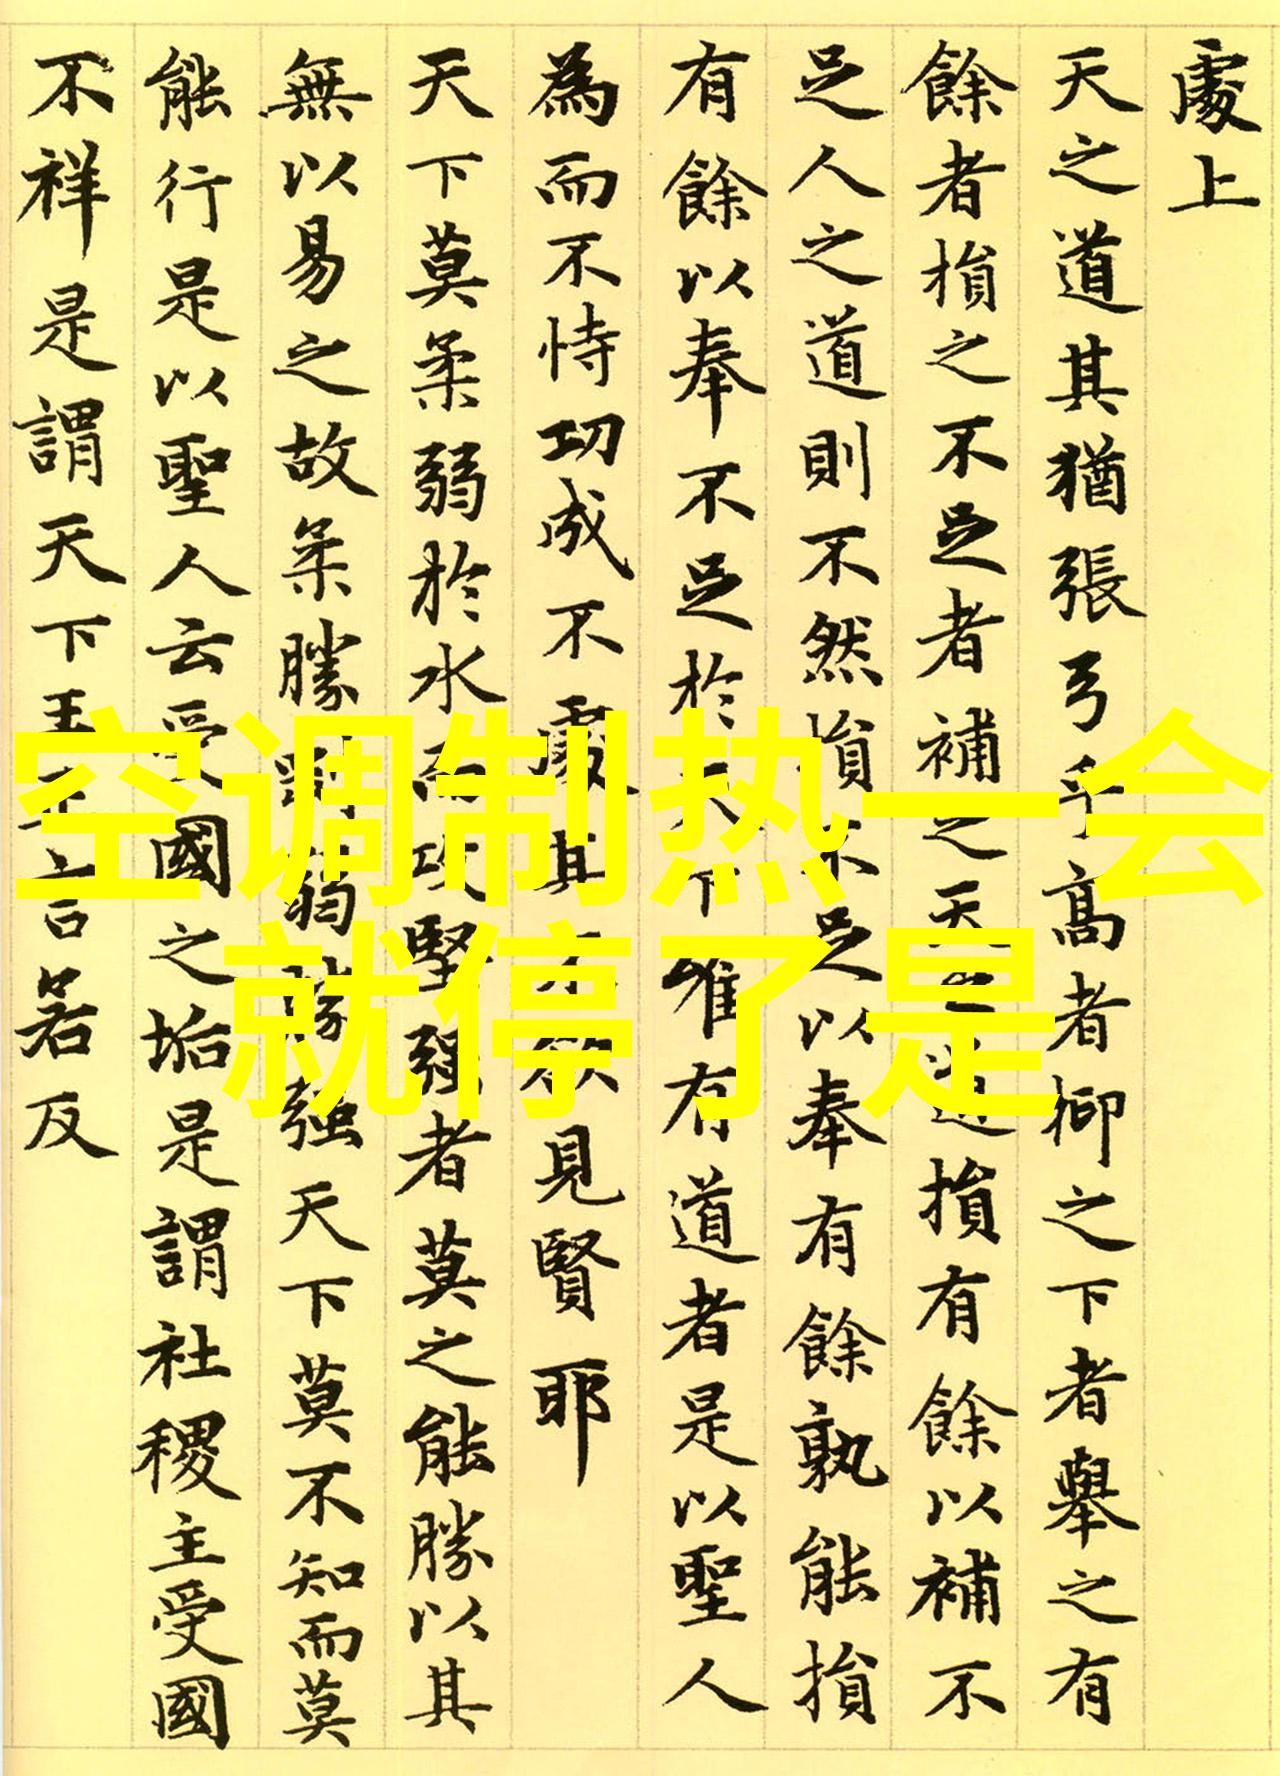 處上
天之道其猶張弓乎高者抑之下者舉之有
餘者損之不足者補之天之道損有餘以補不
足人之道則不然損不足以奉有餘孰能損
有餘以奉不足於天下唯有道者是以聖人
為而不恃功成不處其不欲見賢耶
天下莫柔弱於水而攻堅強者莫之能勝以其
無以易之故柔勝剛弱勝強天下莫不知而莫
能行是以聖人云受國之垢是謂社稷主受國
不祥是謂天下王正言若反
空调制热一会
就停了是